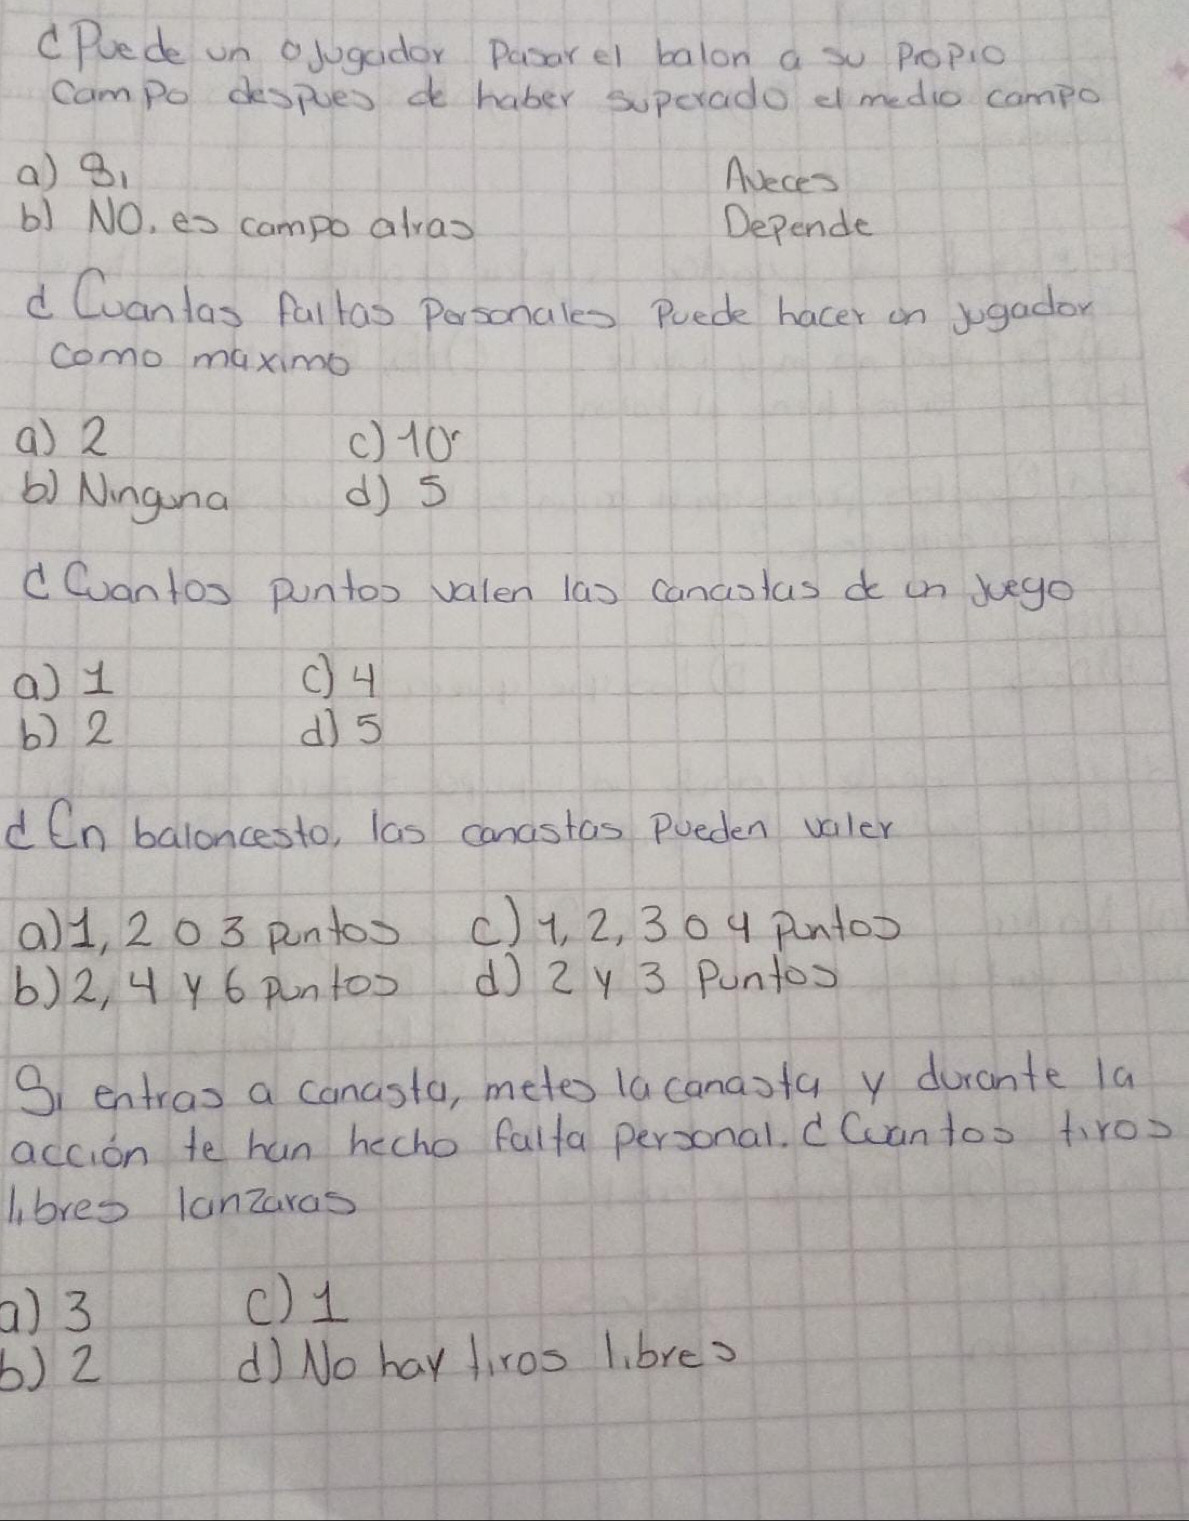 ¿Puede un jugador pasar el balon a su propio
campo despues de haber superado el medio campo
a) Si Aveces
b) NO. es campo atras Depende
¿Cuantas faltas personales puede hacer un jugador
como maximo
a) 2 c) 10
b) Ninguna d) 5
¿Cuantos puntos valen las canastas de un juego
a) 1 c) 4
b) 2 d) 5
¿En baloncesto, las canastas pueden valer
a) 1, 2 o 3 puntos c) 1, 2, 3 o 4 puntos
b) 2, 4 y 6 puntos d) 2 y 3 puntos
Si entras a canasta, metes la canasta y durante la
acción te han hecho falta personal. ¿Cuantos tiros
libres lanzaras
a) 3 c) 1
b) 2 d) No hay tiros libres